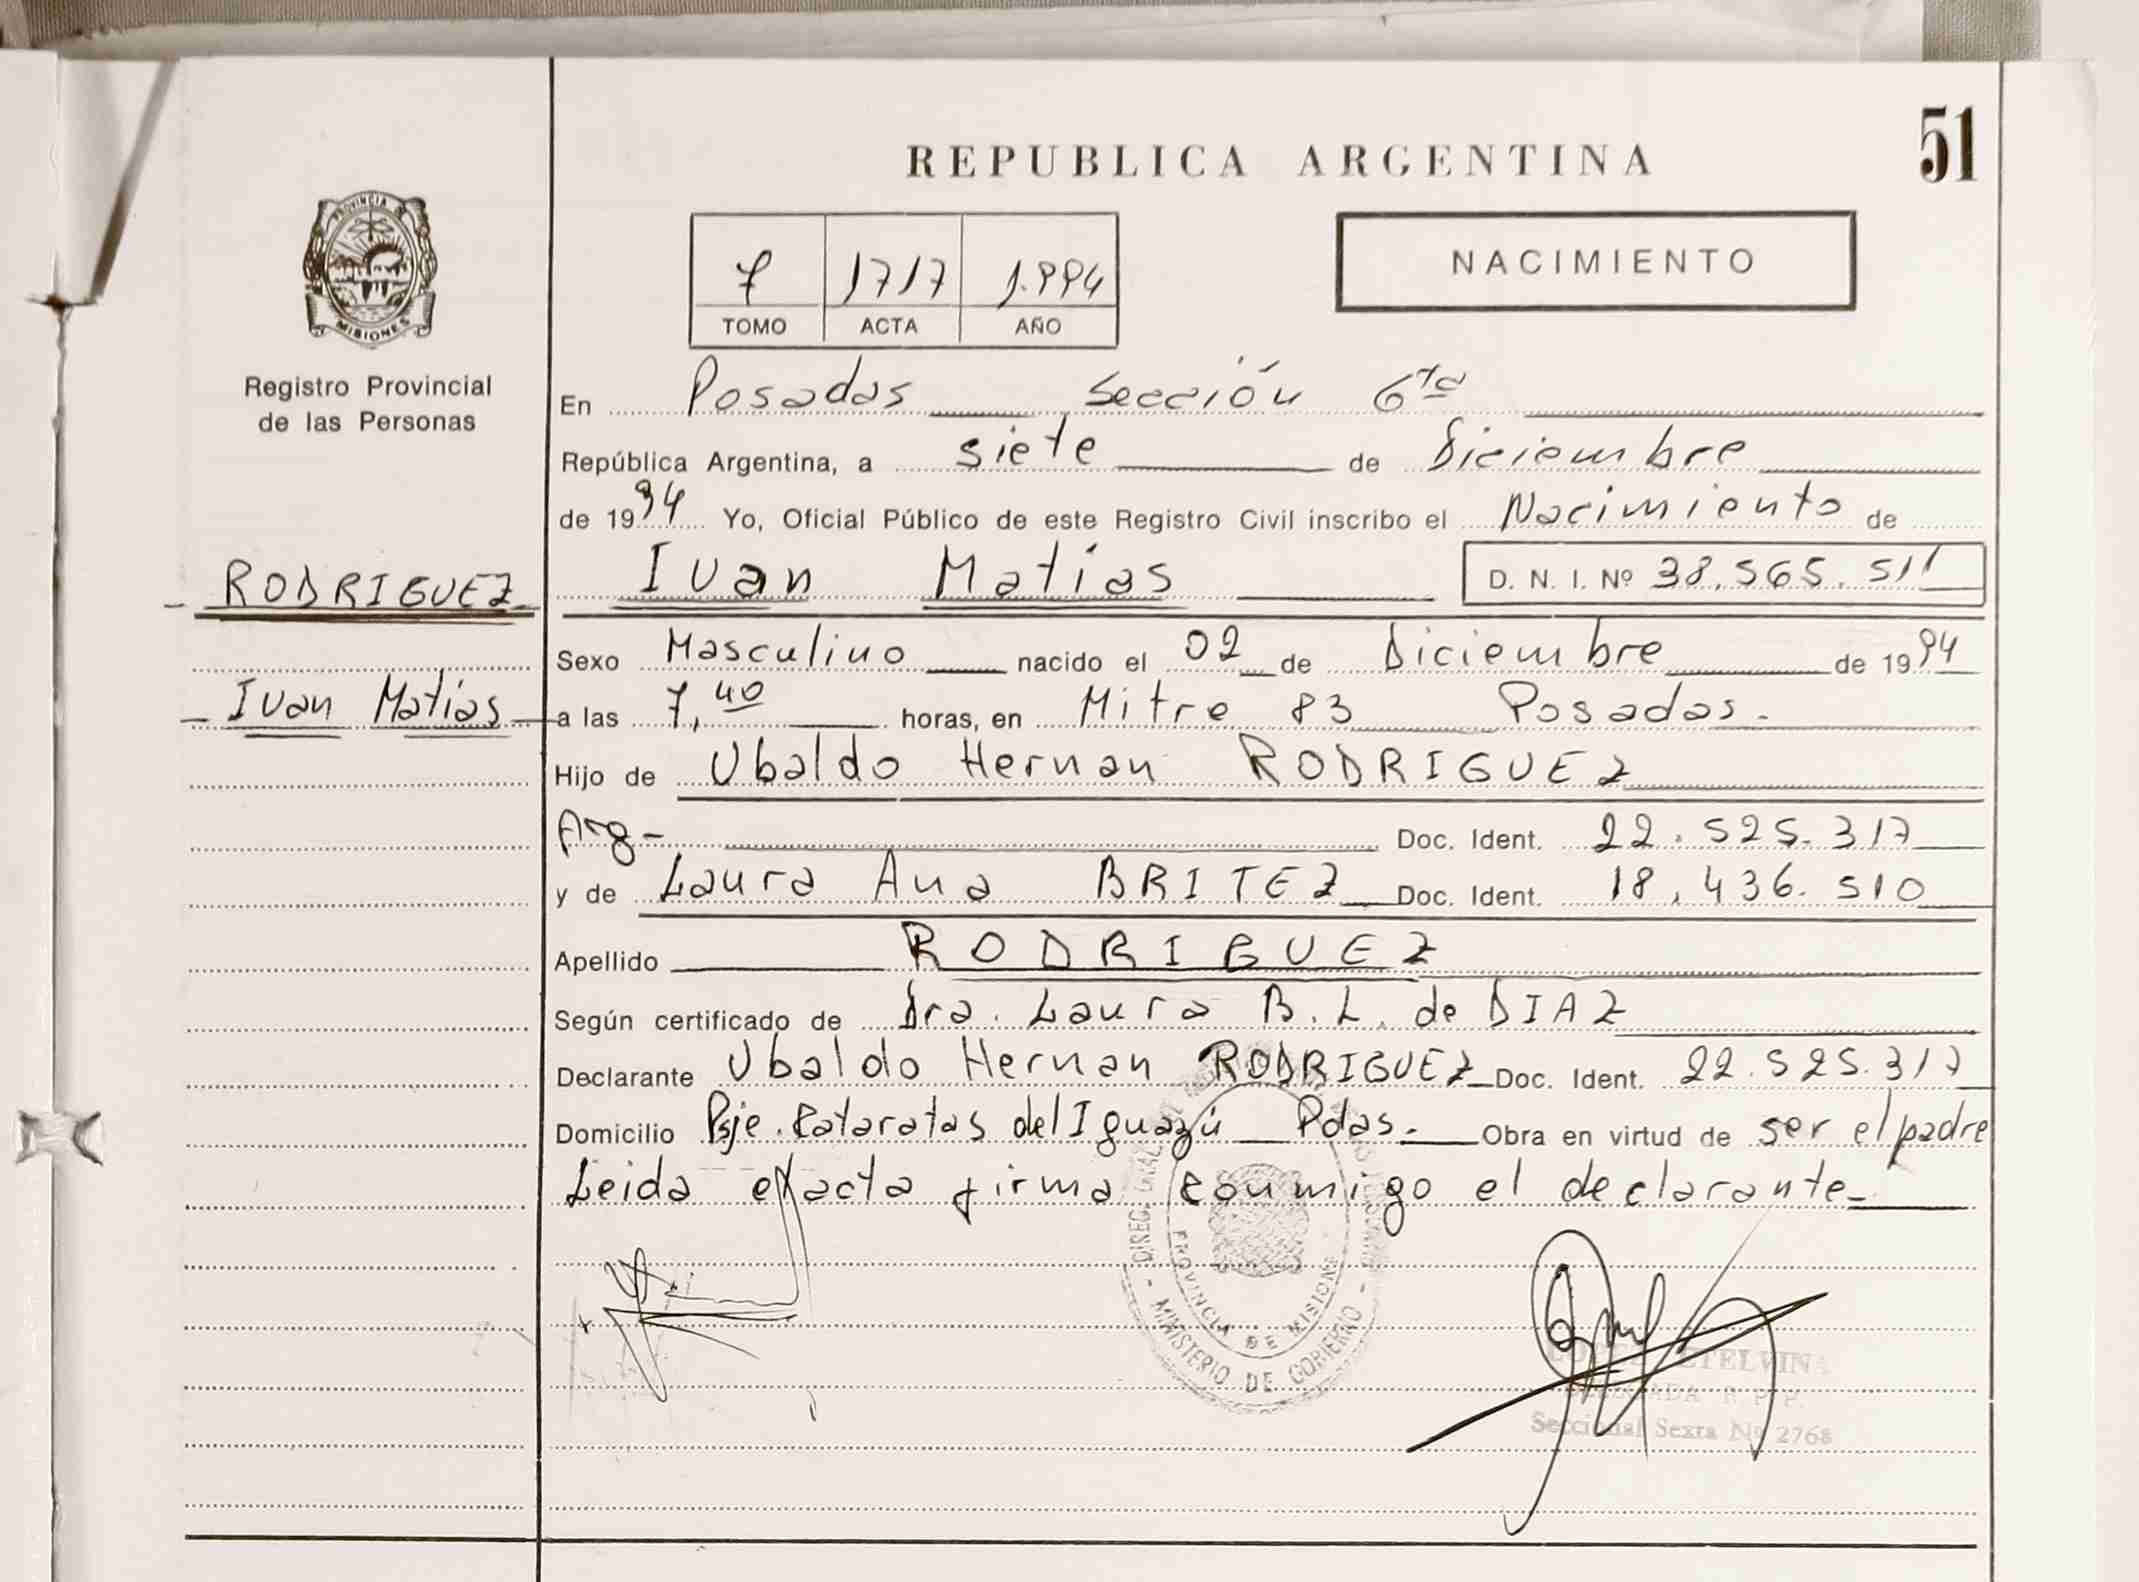 REPUBLICA ARGENTINA
51
PROVINCIA DE
MISIONES
Registro Provincial
de las Personas
7 1717 1.994
TOMO ACTA AÑO
NACIMIENTO
En Posadas Sección 6ta
República Argentina, a siete de Diciembre
de 1994 Yo, Oficial Público de este Registro Civil inscribo el Nacimiento de
RODRIGUEZ Ivan Matías D. N. I. Nº 38.565.511
Sexo Masculino nacido el 02 de Diciembre de 1994
Ivan Matías a las 7,40 horas, en Mitre 83 Posadas.
Hijo de Ubaldo Hernan RODRIGUEZ
Arg- Doc. Ident. 22.525.317
y de Laura Ana BRITEZ Doc. Ident. 18.436.510
Apellido RODRIGUEZ
Según certificado de Dra. Laura B. L. de DIAZ
Declarante Ubaldo Hernan RODRIGUEZ Doc. Ident. 22.525.317
Domicilio Psje. Cataratas del Iguazú Pdas. Obra en virtud de ser el padre
Leida exacta firma conmigo el declarante
PROVINCIA DE MISIONES
MINISTERIO DE GOBIERNO
ETELVINA
DELEGADA R. P. P.
Seccional Sexta Nº 2768